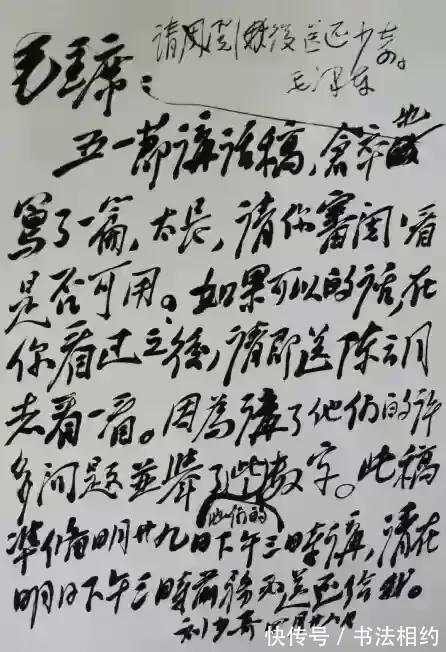 请 後送还少奇。
毛泽东
毛主席：
五一節講话稿，倉卒地
寫了一篇，太長，请你審阅，看
是否可用。如果可以的话，在
你看过之後，请即送陈云同
志看一看。因為講了他们的许
多问题並舉了些数字。此稿
他们的
準備明廿九日下午三时 講，请在
明日下午三时前务必送还给我。
刘少奇 四月廿八日
快传号 / 书法相约